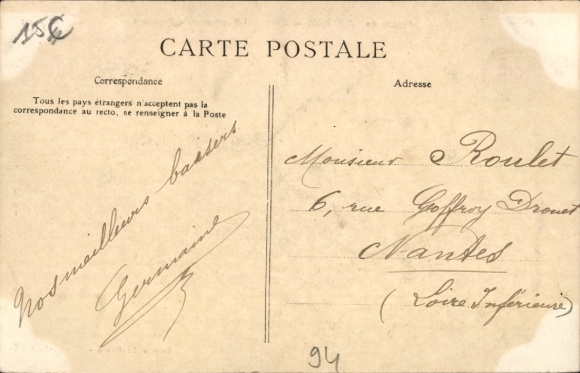 15€
CARTE POSTALE
Correspondance
Tous les pays étrangers n'acceptent pas la
correspondance au recto, se renseigner à la Poste
Nos meilleurs baisers
Germaine
Adresse
Monsieur Roulet
6, rue Goffroy Drouet
Nantes
(Loire Inférieure)
94